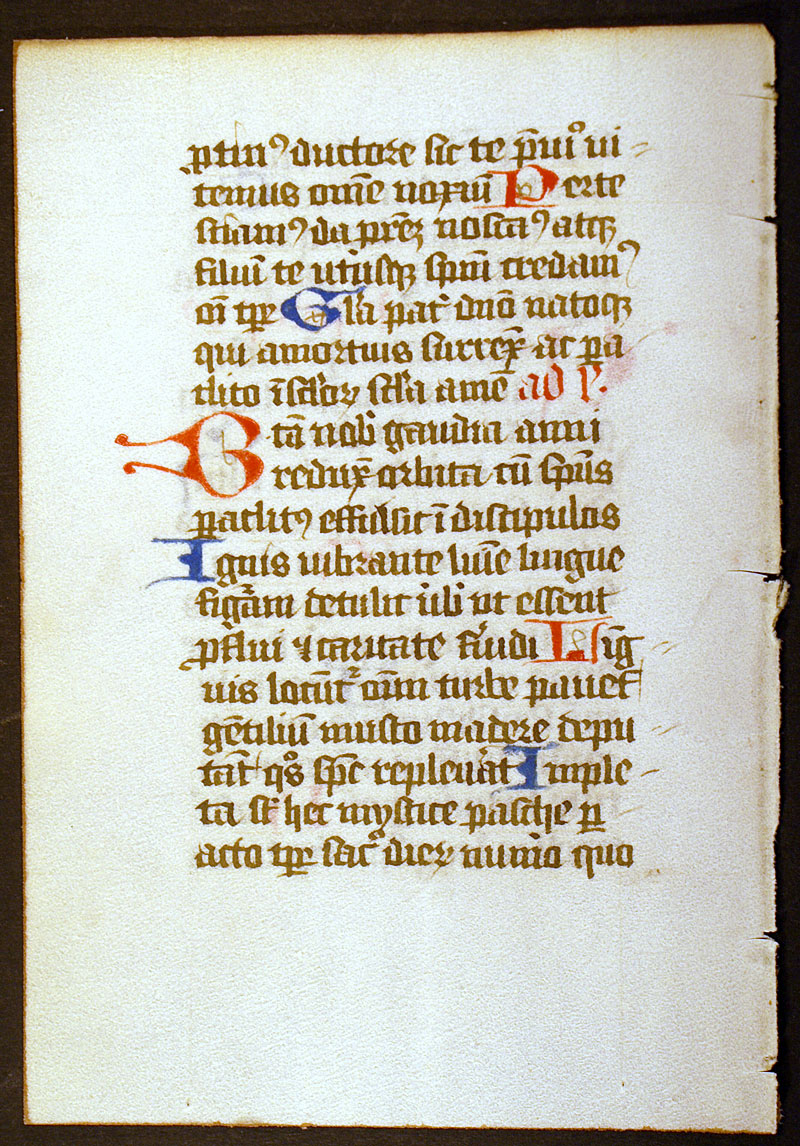 ꝓtin⁹ ductore sic te p̄uio ui=
temus om̄e noxiū Per te
sciam⁹ da prēz nosca⁹ atqꝫ
filiū te utiusqꝫ spm̄ credam⁹
oī tꝑe Gla pat̄ dnō natoqꝫ
qui amortuis surrex̄ ac pa
clito ī sclo⁊ scla amē ad v.
Btā nob̄ gaudia anni
redux̄ orbita cū spūs
ꝑaclit⁹ effulsit ī discipulos
Ignis vibrante luīe lingue
figᵃam detulit ubi ut essent
ꝓflui ⁊ caritate fuidi Līg=
uis locūt² oīm turbe pauēt
gētiliū musto madere depu
tāt qͦs spc̄ repleuāt Imple-
ta st̄ hec mystice pasche ꝑ
acto tꝑe sacͦ dieꝝ numͦo quo